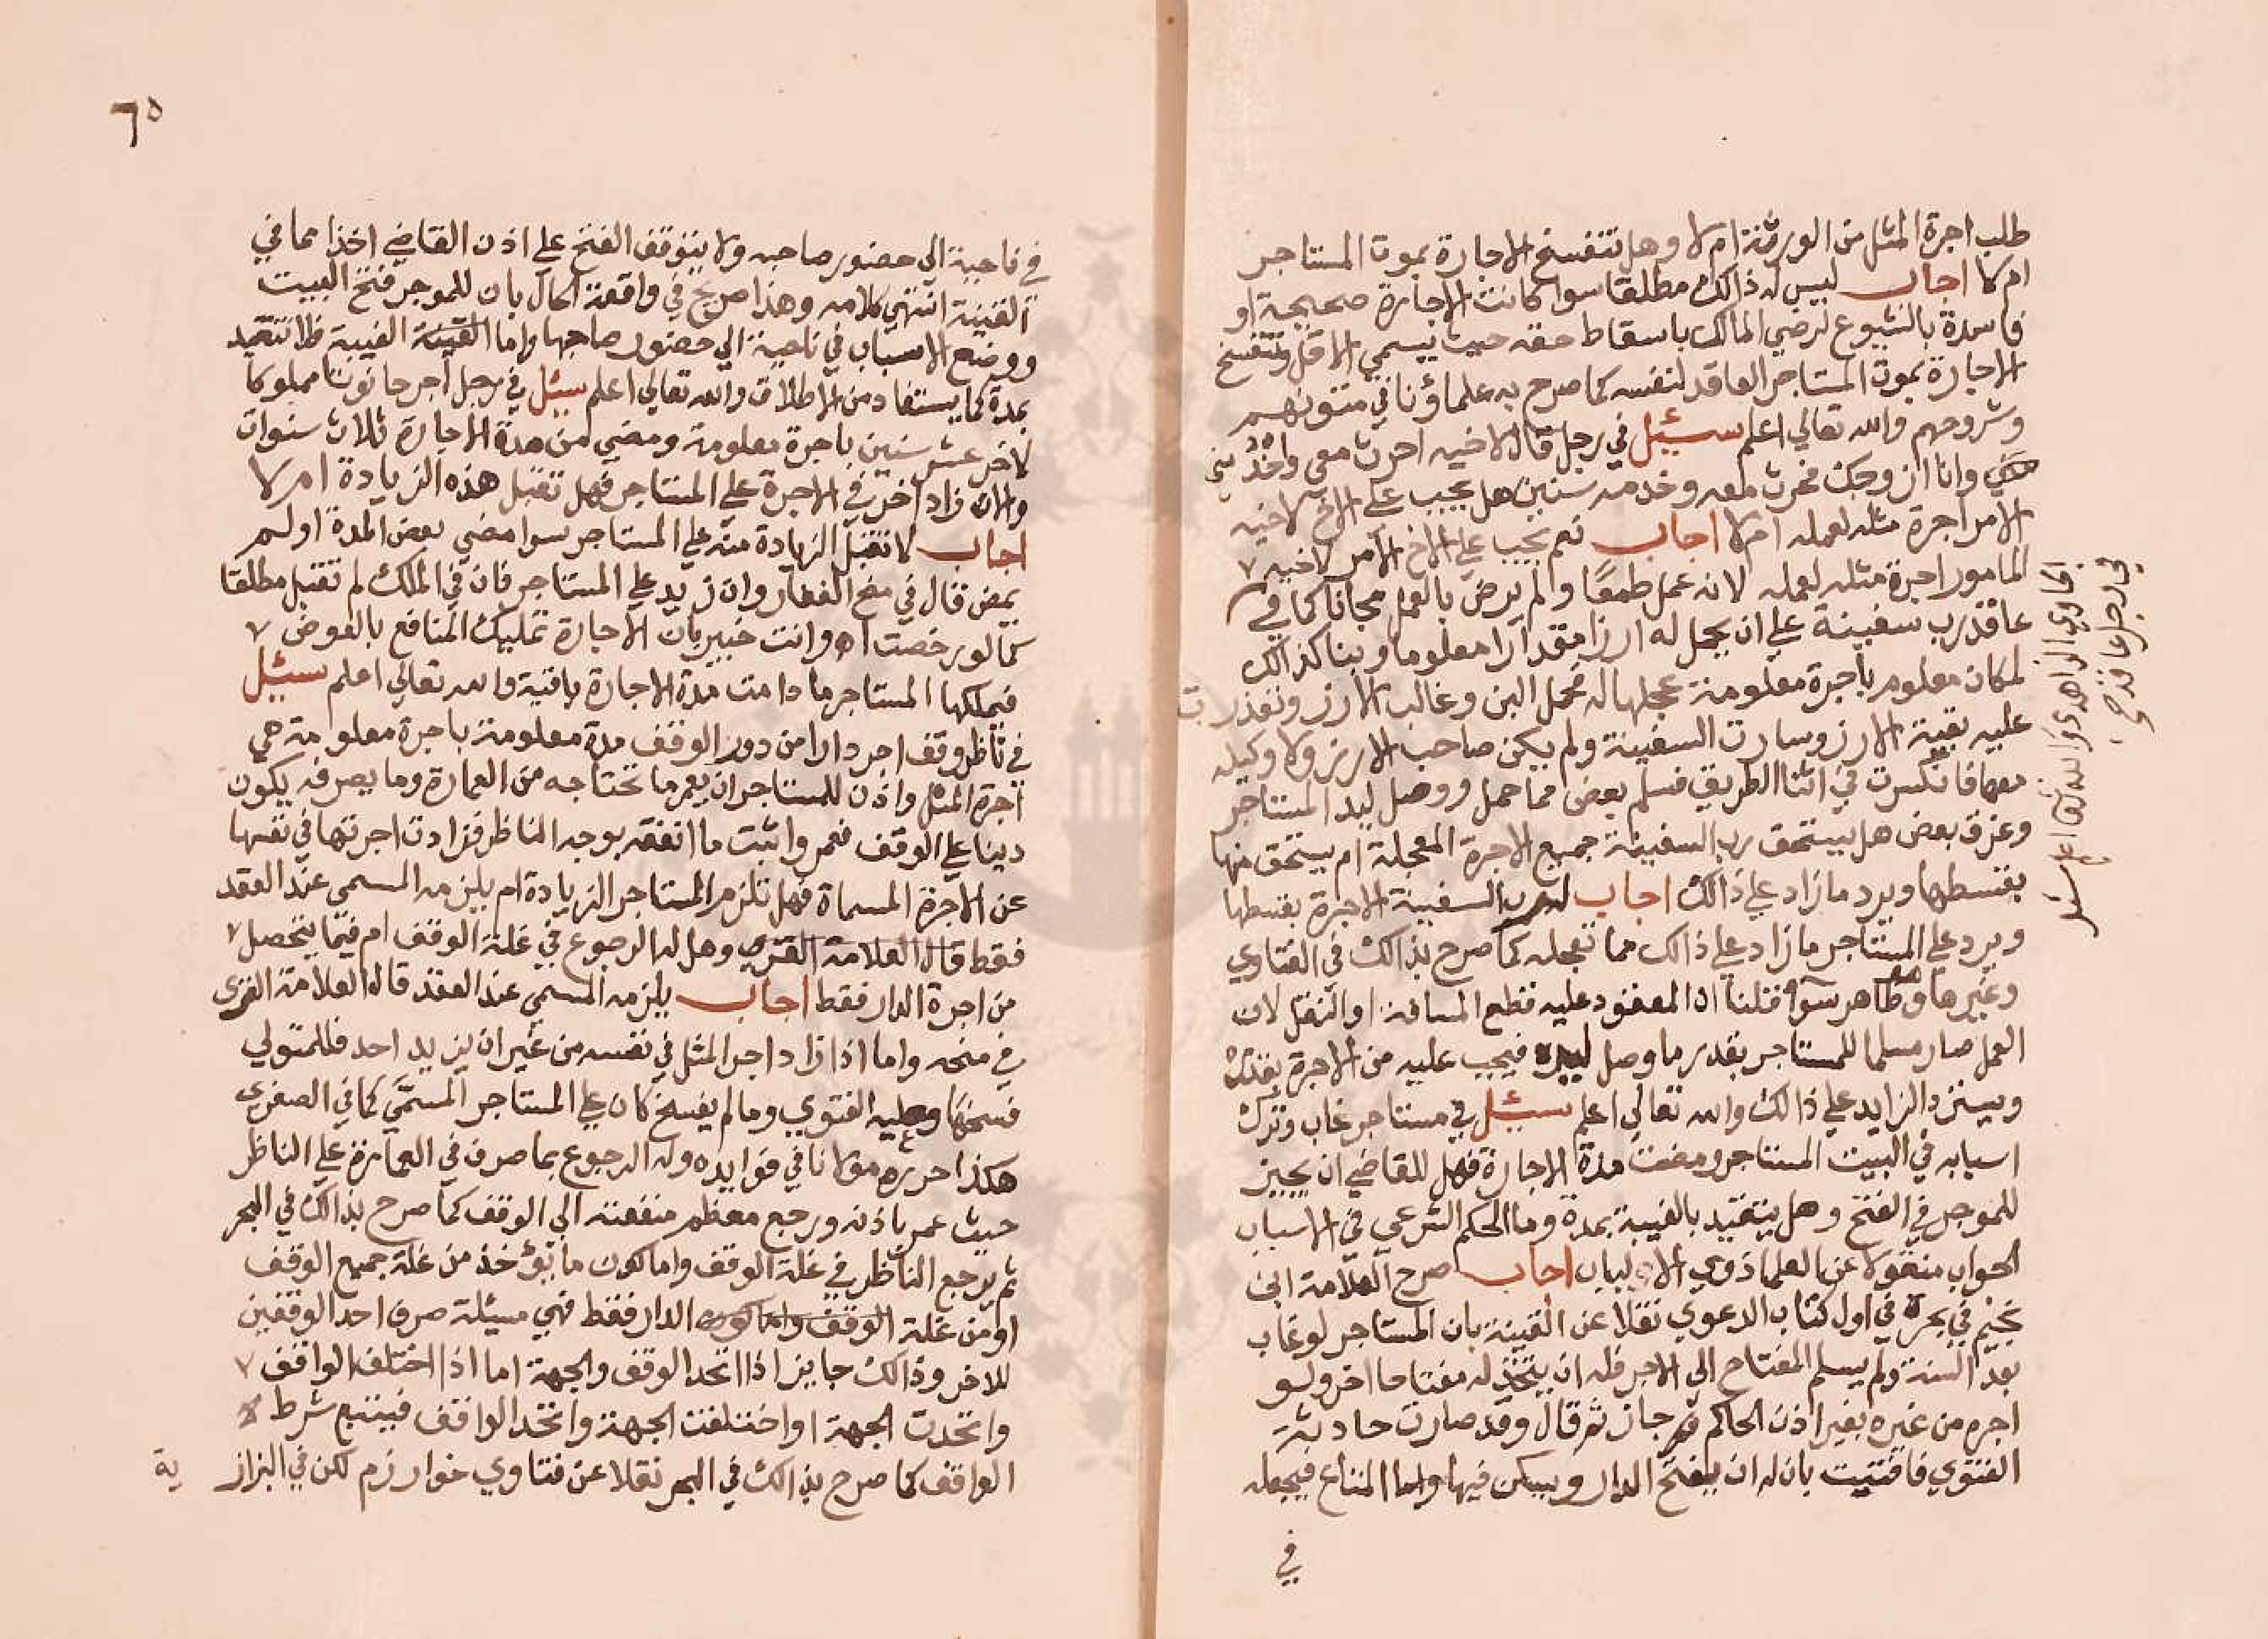 طلب اجرة المثل من الورثة ام لا وهل تنفسخ الاجارة بموت المستاجر
ام لا اجاب ليس له ذالك مطلقا سوا كانت الاجارة صحيحة او
فاسدة بالشيوع لرضي المالك باسقاط حقه حيث يسمي الاقل وتنفسخ
الاجارة بموت المستاجر العاقد لنفسه كما صرح به علماؤنا في متونهم
وشروحهم والله تعالي اعلم سئيل في رجل قال لاخيه احرث معي
وانا ازوجك فحرث معه وخدمه سنين هل يجب علي الاخ لاخيه
الامر اجرة مثله لعمله ام لا اجاب نعم يجب علي الاخ الآمر لاخيه
المامور اجرة مثله لعمله لانه عمل طمعًا ولم يرض بالعمل مجانا كما في
الحاوي الزاهدي والله تعالي اعلم سئل
في رجل عاقد
عاقد رب سفينة علي ان يحمل له ارزا مقدارا معلوما وبنا كذالك
لمكان معلوم باجرة معلومة عجلها له فحمل البن وغالب الارز وتعذرت
عليه بقية الارز وسارت السفينة ولم يكن صاحب الارز ولا وكيله
معها فانكسرت في اثنا الطريق فسلم بعض مما حمل ووصل ليد المستاجر
وغرق بعض هل يستحق رب السفينة جميع الاجرة المعجلة ام يستحق منها
بقسطها ويرد ما زاد علي ذالك اجاب لرب السفينة الاجرة بقسطها
ويرد علي المستاجر ما زاد علي ذالك مما تعجله كما صرح بذالك في الفتاوي
وغيرها وظاهر سوا قلنا ان المعقود عليه قطع المسافة او النقل لان
العمل صار مسلما للمستاجر بقدر ما وصل ليده فيجب عليه من الاجرة بقدر
ويسترد الزايد علي ذالك والله تعالي اعلم سئيل في مستاجر غاب وترك
اسبابه في البيت المستاجر ومضت مدة الاجارة فهل للقاضي ان يجيز
للموجر في الفتح وهل يتقيد بالغيبة بمدة وما الحكم الشرعي في الاسباب
الجواب منقولا عن العلما ذوي الالباب اجاب صرح العلامة ابن
نجيم في بحره في اول كتاب الدعوي نقلا عن القينة بان المستاجر لو غاب
بعد السنة ولم يسلم المفتاح الي الاجر فله ان يتخذ له مفتاحا اخر ولو
اجره من غيره بغير اذن الحاكم جاز ثم قال وقد صارت حادثة
الفتوي فافتيت بان له ان يفتح الدار ويسكن فيها واما المتاع فيجعله
في
٦٥
في ناحية الي حضور صاحبه ولا يتوقف الفتح علي اذن القاضي اخذا مما في
القينة انتهي كلامه وهذا صريح في واقعة الحال بان للموجر فتح البيت
ووضع الاسباب في ناحية الي حضور صاحبها واما الغيبة فلا تتقيد
بمدة كما يستفاد من الاطلاق والله تعالي اعلم سئيل في رجل آجر حانوتا مملوكا
لاخر عشر سنين باجرة معلومة ومضي من مدة الاجارة ثلاث سنوات
والان زاد اخر في الاجرة علي المستاجر فهل تقبل هذه الزيادة ام لا
اجاب لا تقبل الزيادة منه علي المستاجر سوا مضي بعض المدة او لم
يمض قال في منح الغفار وان زيد علي المستاجر فان في الملك لم تقبل مطلقا
كما لو رخصت اه وانت خبير بان الاجارة تمليك المنافع بالعوض
فيملكها المستاجر ما دامت مدة الاجارة باقية والله تعالي اعلم سئيل
في ناظر وقف اجر دارا من دور الوقف مدة معلومة باجرة معلومة هي
اجرة المثل واذن للمستاجر ان يعمر ما تحتاجه من العمارة وما يصرفه يكون
دينا علي الوقف فعمر واثبت ما انفقه بوجه الناظر فزادت اجرتها في نفسها
عن الاجرة المسماة فهل تلزم المستاجر الزيادة ام يلزمه المسمي عند العقد
فقط قاله العلامة الغزي وهل له الرجوع في غلة الوقف ام فيما يتحصل
من اجرة الدار فقط اجاب يلزمه المسمي عند العقد قاله العلامة الغزي
في منحه واما اذا زاد اجر المثل في نفسه من غير ان يزيد احد فللمتولي
فسخها وعليه الفتوي وما لم يفسخ كان علي المستاجر المسمَّي كما في الصغري
هكذا حرره مولانا في فوايده وله الرجوع بما صرف في العمارة علي الناظر
حيث عمر باذنه ورجع معظم منفعته الي الوقف كما صرح بذالك في البحر
ثم يرجع الناظر في غلة الوقف واما كون ما يؤخذ من غلة جميع الوقف
او من غلة الوقف واما كون الدار فقط فهي مسيئلة صرف احد الوقفين
للاخر وذالك جايز اذا اتحد الوقف والجهة اما اذا اختلف الواقف
واتحدت الجهة او اختلفت الجهة واتحد الواقف فيتبع شرط
الواقف كما صرح بذالك في البحر نقلا عن فتاوي خوارزم لكن في البزاز
ية